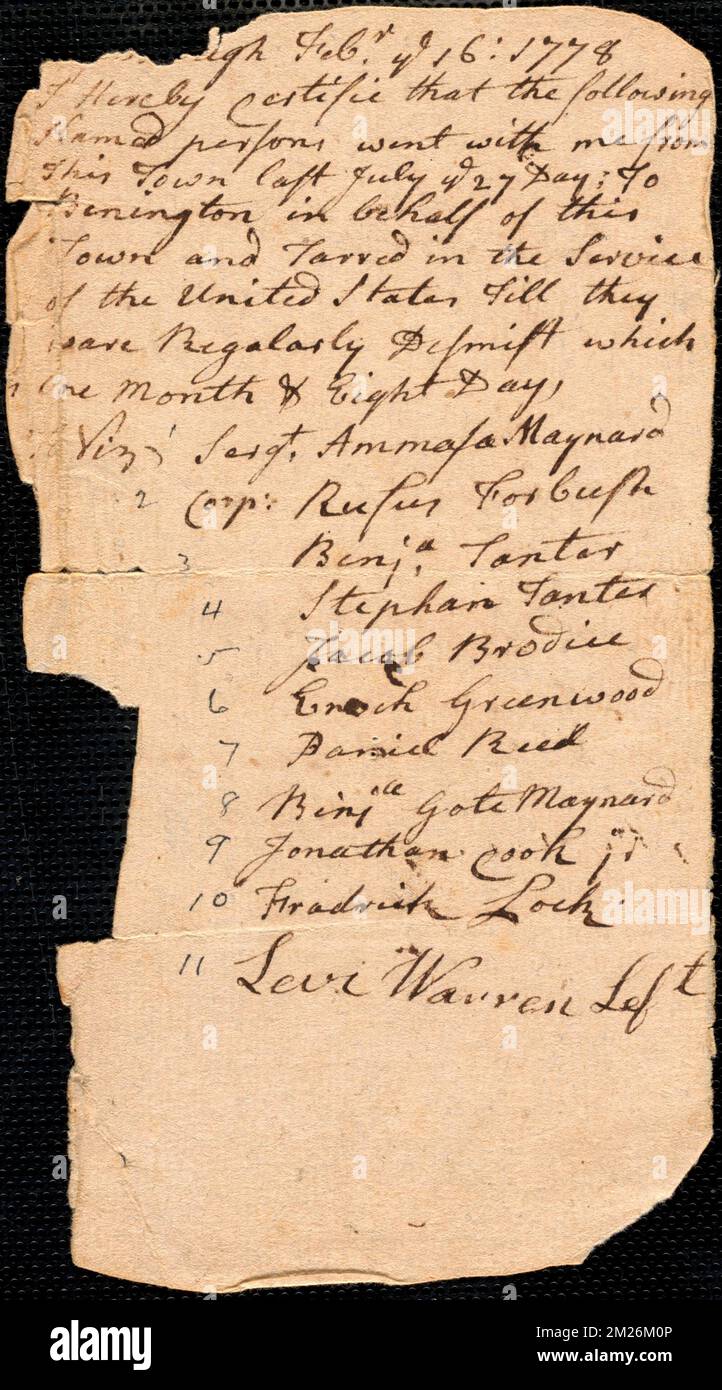 Feb.r ye 16: 1778
I Hereby Certifie that the following
Named persons went with me from
This Town last July ye 27 Day: To
Benington in behalf of this
Town and Tarred in the Service
of the United States Till they
ware Regalarly Desmist which
one Month & Eight Days
Viz 1 Sergt. Ammasa Maynard
2 Corp: Rufus Forbush
3 Benja. Tanter
4 Stephan Tanter
5 Jacob Brodice
6 Enoch Greenwood
7 Daniel Reed
8 Binja Gote Maynard
9 Jonathan Cook jr
10 Fradrick Lock
11 Levi Warren Left
alamy
Image ID: 2M26M0P
www.alamy.com